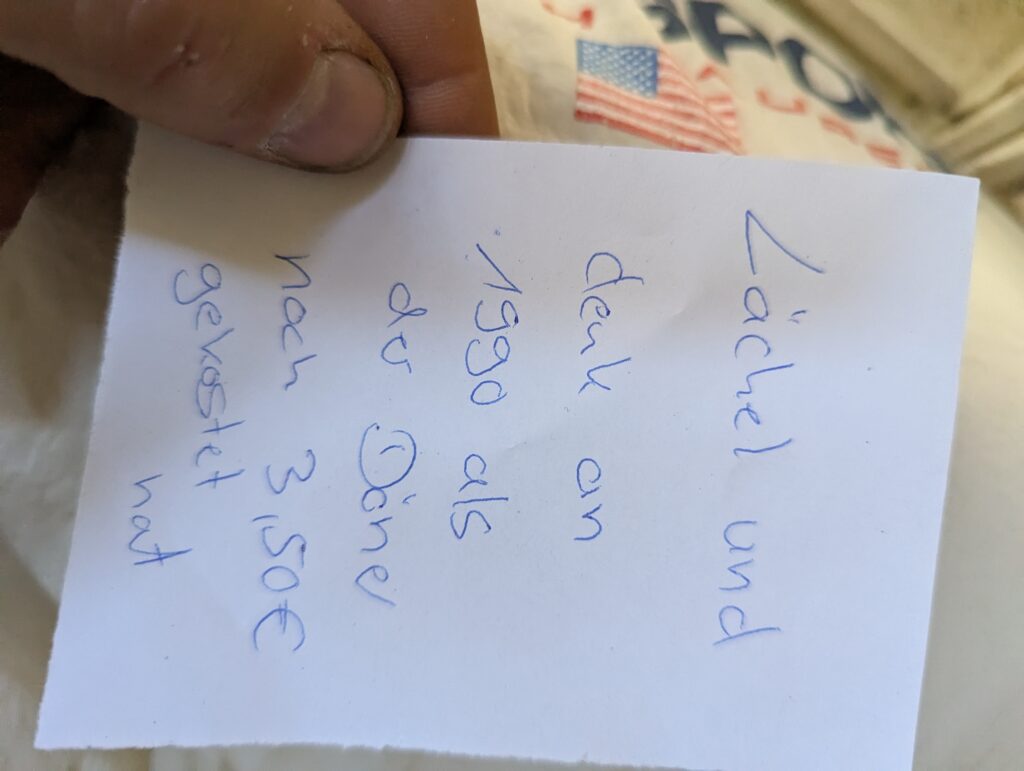 Lächel und
denk an
1990 als
der Döner
noch 3,50€
gekostet
hat